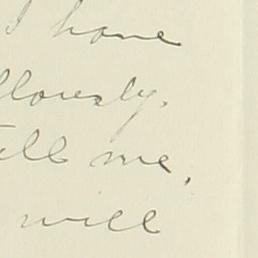 I have
llously.
tell me,
will